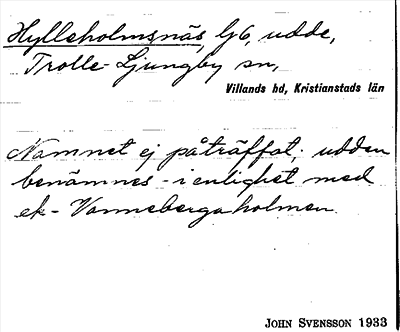 Hylleholmsnäs, Lj6, udde,
Trolle-Ljungby sn,
Villands hd, Kristianstads län
Namnet ej påträffat, udden
benämnes - i enlighet med
ek - Vannebergaholmen.
JOHN SVENSSON 1933